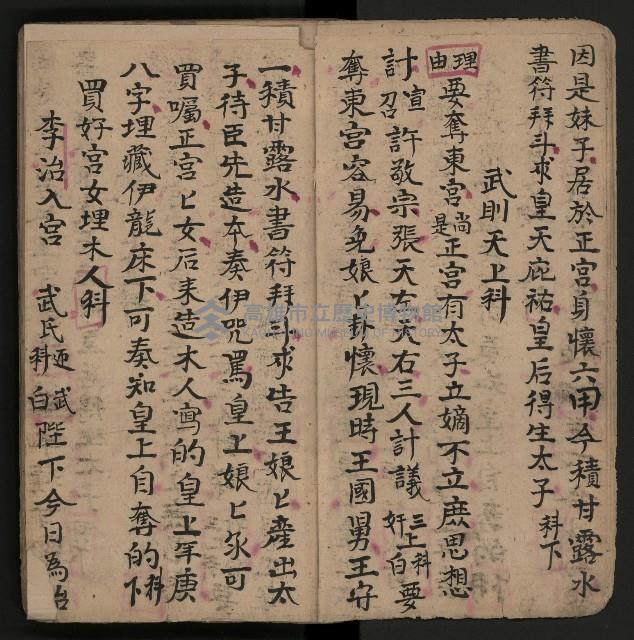 因是妹子居於正宮身懷六甲今積甘露水
書符拜斗求皇天庇祐皇后得生太子 科下
武則天上科
理由 要奪東宮 尚是 正宮有太子立嫡不立庶思想
計 宣召 許敬宗張天左天右三人計議 三上科 奸白 要
奪東宮容易免娘匕掛懷現時王國舅王守
一積甘露水書符拜斗求告王娘匕產出太
子待臣先造本奏伊咒罵皇上娘匕永可
買囑正宮匕女后來造木人寫的皇上年庚
八字埋藏伊龍床下可奏知皇上自奪的 科下
買好宮女埋木人科
李治入宮 武氏 迎科 武白 陛下今日為治
高雄市立歷史博物館
KAOHSIUNG MUSEUM OF HISTORY